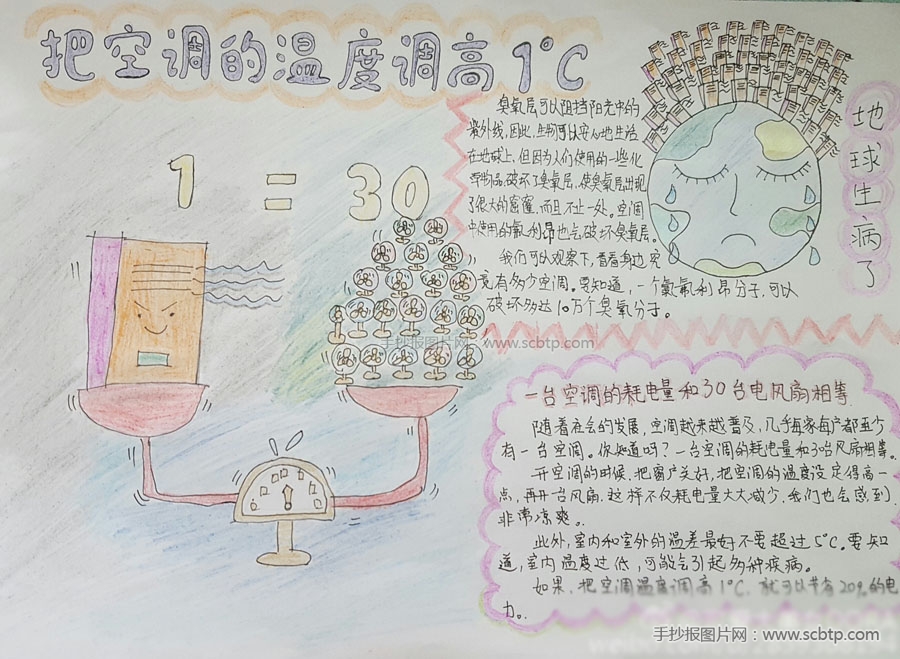 把空调的温度调高1°C
1 = 30
臭氧层可以阻挡阳光中的
紫外线,因此,生物可以安心地生活
在地球上,但因为人们使用的一些化
学物品,破坏了臭氧层,使臭氧层出现
了很大的窟窿,而且不止一处。空调
中使用的氟利昂也会破坏臭氧层。
我们可以观察下,看看身边究
竟有多少空调。要知道,一个氯氟利昂分子,可以
破坏多达10万个臭氧分子。
地球生病了
手抄报图片网:www.scbtp.com
一台空调的耗电量和30台电风扇相等
随着社会的发展,空调越来越普及,几乎每家每户都至少
有一台空调。你知道吗?一台空调的耗电量和30台风扇相等。
开空调的时候,把窗户关好,把空调的温度设定得高一
点,再开台风扇,这样不仅耗电量大大减少,我们也会感到
非常凉爽。
此外,室内和室外的温差最好不要超过5°C。要知
道,室内温度过低,可能会引起多种疾病。
如果,把空调温度调高1°C,就可以节省20%的电
力。
手抄报图片网:www.scbtp.com